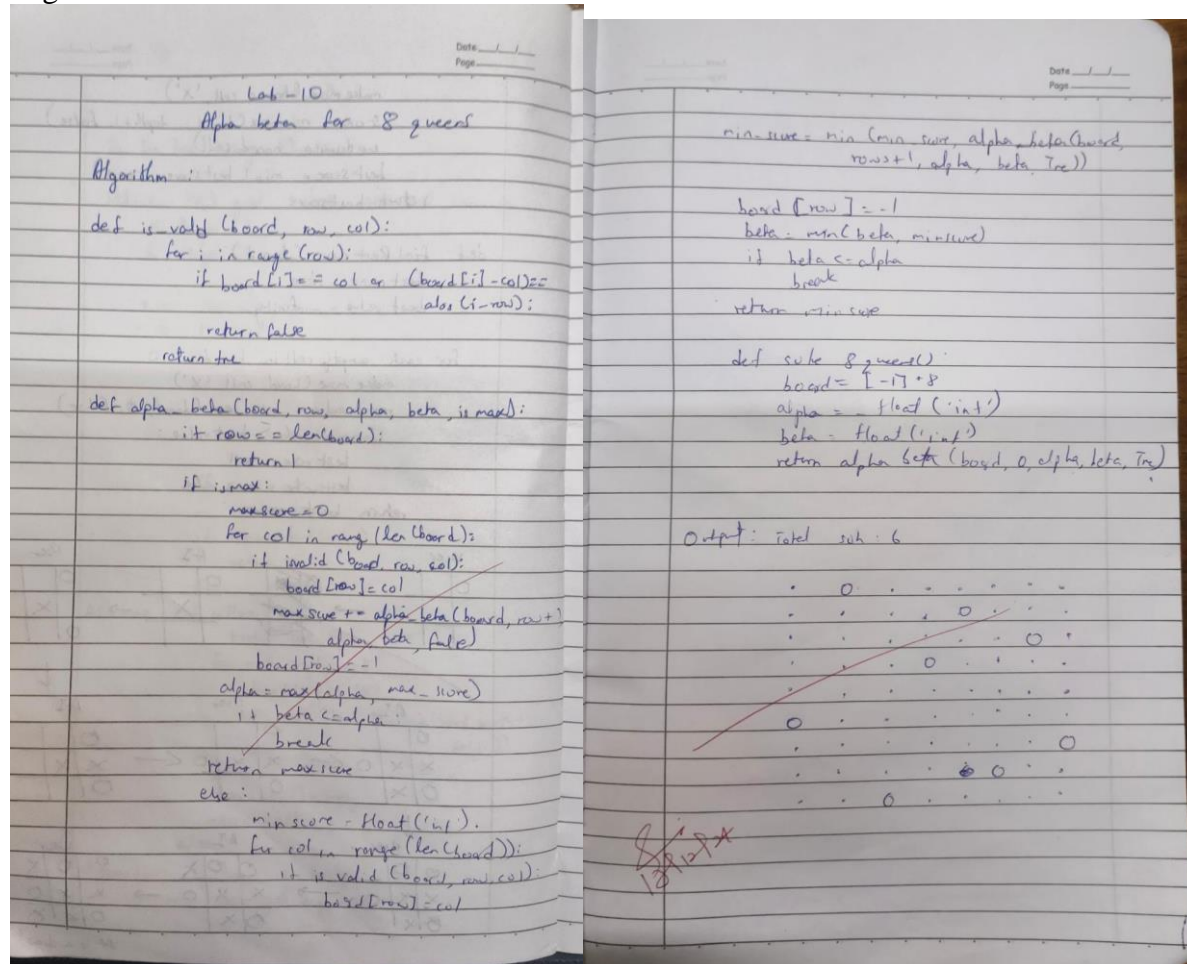 Date
Page
Lab-10
Alpha beta for 8 queens
Algorithm :
def is_valid (board, row, col):
for i in range (row):
if board [i] == col or (board [i] - col) ==
abs (i-row):
return false
return true
def alpha_beta (board, row, alpha, beta, is max):
if row == len(board):
return 1
if is max:
maxscore = 0
for col in rang (len (board):
if invalid (board, row, col):
board [row] = col
max score += alpha_beta (board, row+1
alpha, beta, false)
board [row] = -1
alpha = max (alpha, max_score)
if beta <= alpha:
break
return max score
else :
min score = float ('inf').
for col in range (len (board)):
if is valid (board, row, col):
board [row] = col
Date
Page
min_score = min (min_score, alpha_beta (board,
rows+1, alpha, beta, Tre))
board [row] = -1
beta = min (beta, minscore)
if beta <= alpha
break
return min score
def solve 8 queens()
board = [-1] * 8
alpha = - float ('inf')
beta = float ('inf')
return alpha beta (board, 0, alpha, beta, Tre)
Output : Total soln : 6
. O . . . . . .
. . . . O . .
. . . . . . O .
. . . O . . .
. . . . . . . .
O . . . . . . .
. . . . . . . O
. . . . O . .
. . O . . . . .